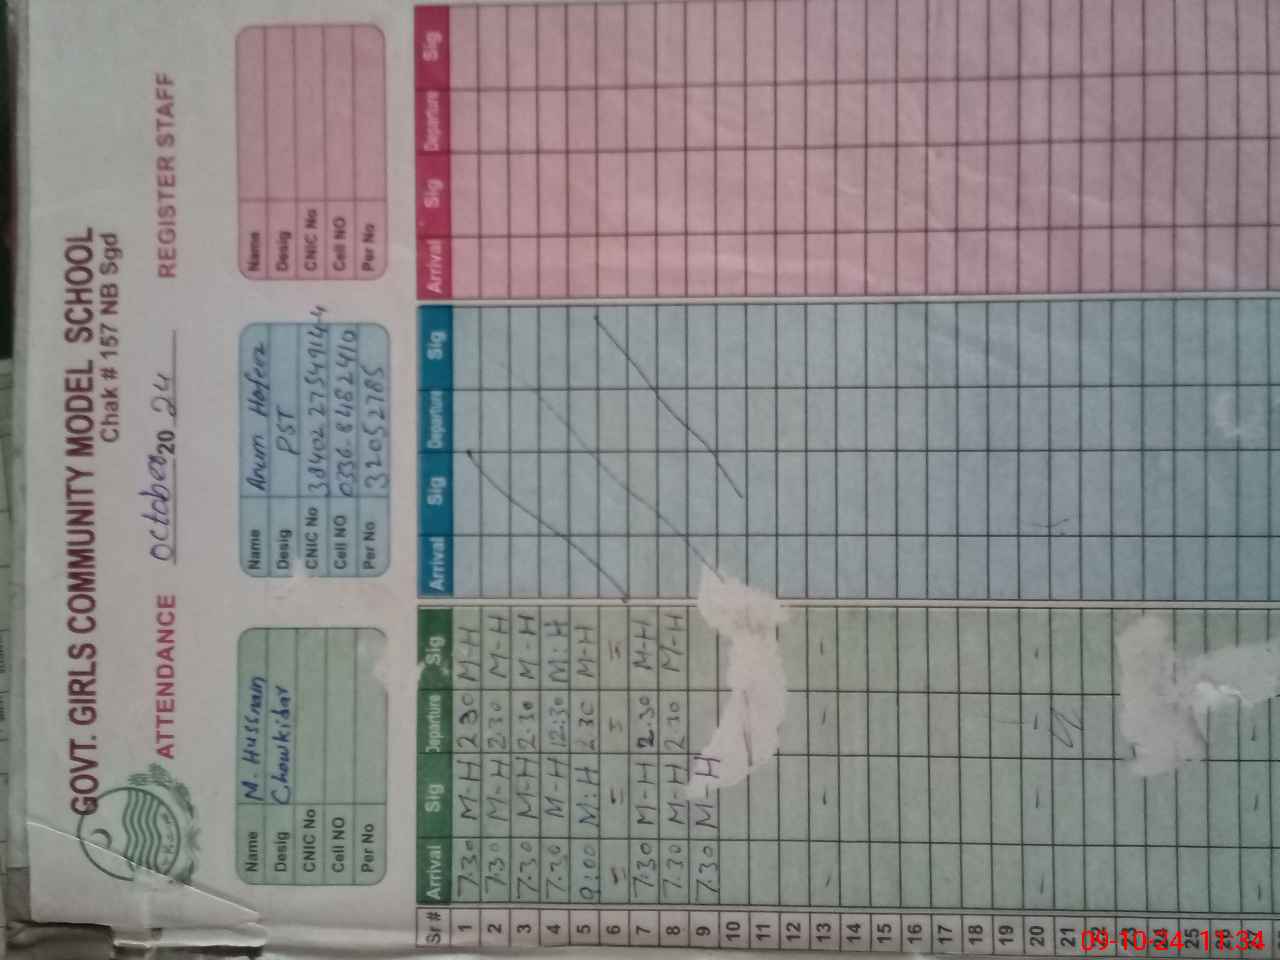 GOVT. GIRLS COMMUNITY MODEL SCHOOL
Chak # 157 NB Sgd
ATTENDANCE October 20 24 REGISTER STAFF
Name M. Hussnain
Desig Chowkidar
CNIC No
Cell NO
Per No
Name Anum Hafeez
Desig PST
CNIC No 38402 2754914-4
Cell NO 0336-8482410
Per No 32052785
Name
Desig
CNIC No
Cell NO
Per No
Sr # Arrival Sig Departure Sig Arrival Sig Departure Sig Arrival Sig Departure Sig
1 7:30 M-H 2:30 M-H
2 7:30 M-H 2:30 M-H
3 7:30 M-H 2:30 M-H
4 7:30 M-H 12:30 M:H
5 9:00 M:H 2:30 M-H
6 = = = =
7 7:30 M-H 2:30 M-H
8 7:30 M-H 2:30 M-H
9 7:30 M-H
10
11
12
13 - - - -
14
15
16
17
18
19
20 - - - -
21
22
23
24
25
26
27 - - -
09-10-24 11:34